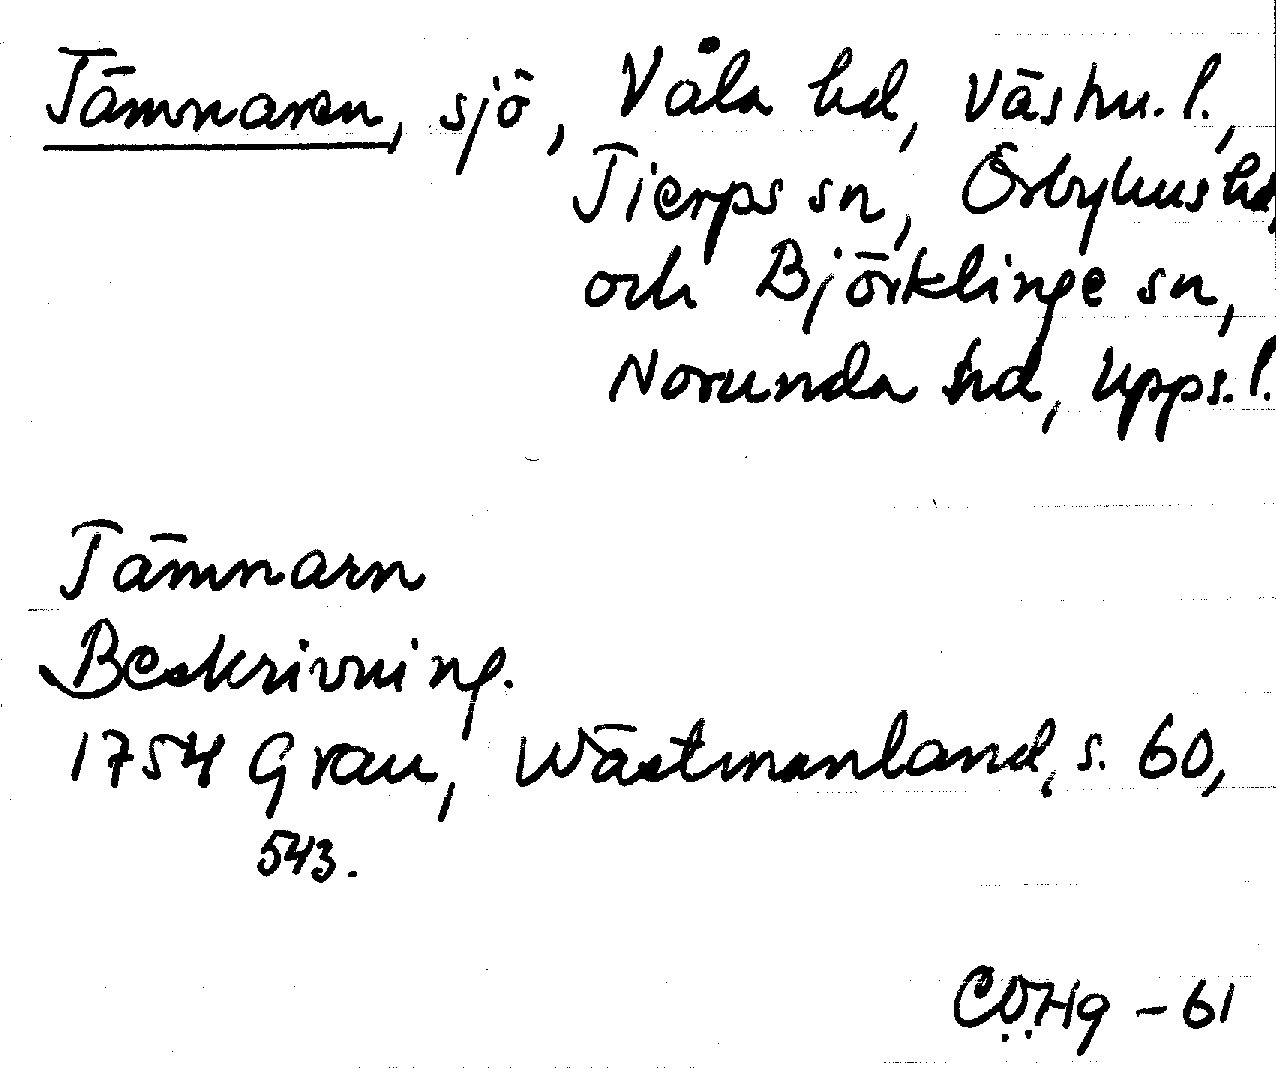 Tämnaren, sjö, Våla hd, Västm. l.,
Tierps sn, Örbyhus hd,
och Björklinge sn,
Norunda hd, Upps. l.
Tämnarn
Beskrivning.
1754 Grau, Wästmanland, s. 60,
543.
CÖHg - 61